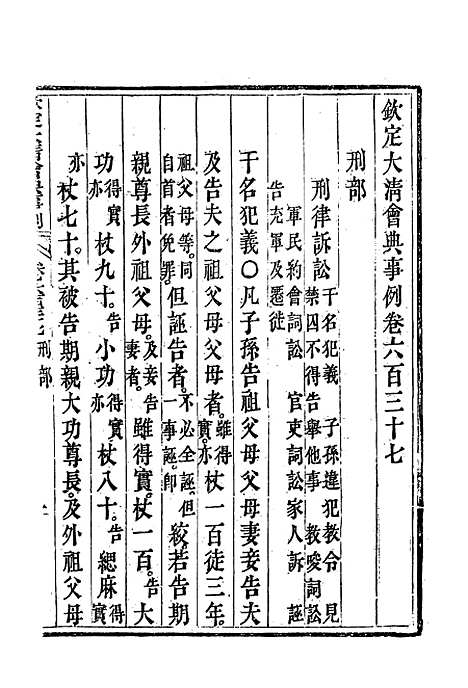 欽定大清會典事例卷六百三十七
刑部
刑律訴訟 干名犯義 子孫違犯教令 見
禁囚不得告舉他事 教唆詞訟
軍民約會詞訟 官吏詞訟家人訴 誣
告充軍及遷徙
干名犯義〇凡子孫告祖父母父母妻妾告夫
及告夫之祖父母父母者雖得實亦杖一百徒三年
祖父母等同自首者免罪但誣告者不必全誣但一事誣即絞若告期
親尊長外祖父母及妾告妻者雖得實杖一百告大
功得實亦杖九十告小功得實亦杖八十告緦麻得實
亦杖七十其被告期親大功尊長及外祖父母
刑部